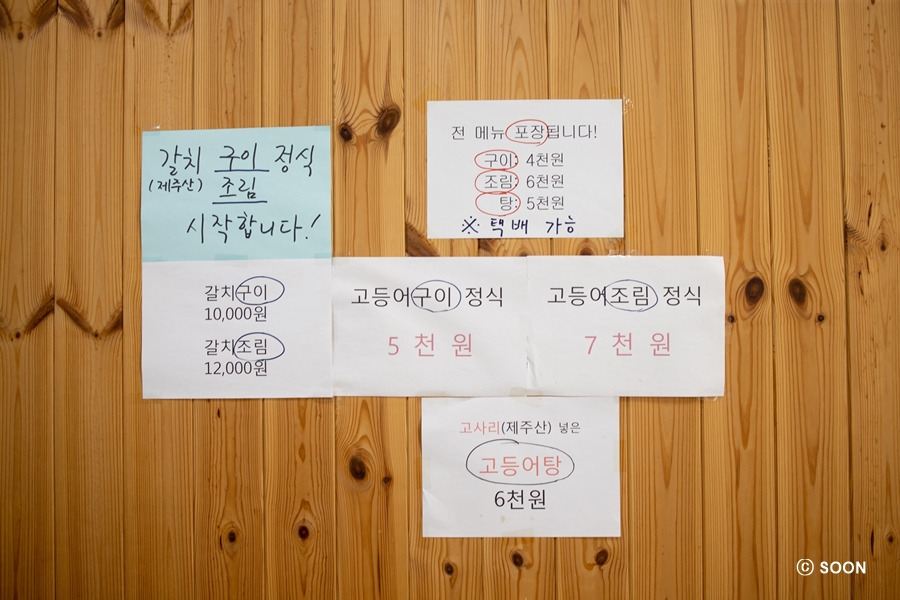 갈치 구이 정식
(제주산) 조림
시작합니다!
갈치구이
10,000원
갈치조림
12,000원
전 메뉴 포장됩니다!
구이: 4천원
조림: 6천원
탕: 5천원
※ 택배 가능
고등어구이 정식
5 천 원
고등어조림 정식
7 천 원
고사리(제주산) 넣은
고등어탕
6천원
ⓒ SOON